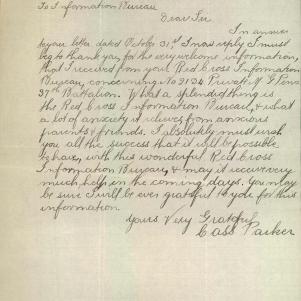 To Information Bureau
Dear Sir
In answer
to your letter dated October 31st I now reply I must
beg to thank you, for the very welcome information,
that I received from your Red Cross Information
Bureau, concerning No 3124 Private
37th Battalion. What a splendid thing is
the Red Cross Information Bureau, & what
a lot of anxiety it relieves from anxious
parents & friends. I absolutely must wish
you all the success that it will be possible
to have, with this wonderful Red Cross
Information Bureau, & may it receive very
much help in the coming days. You may
be sure I will be ever grateful to you for this
information.
Yours Very Grateful
Cass Parker